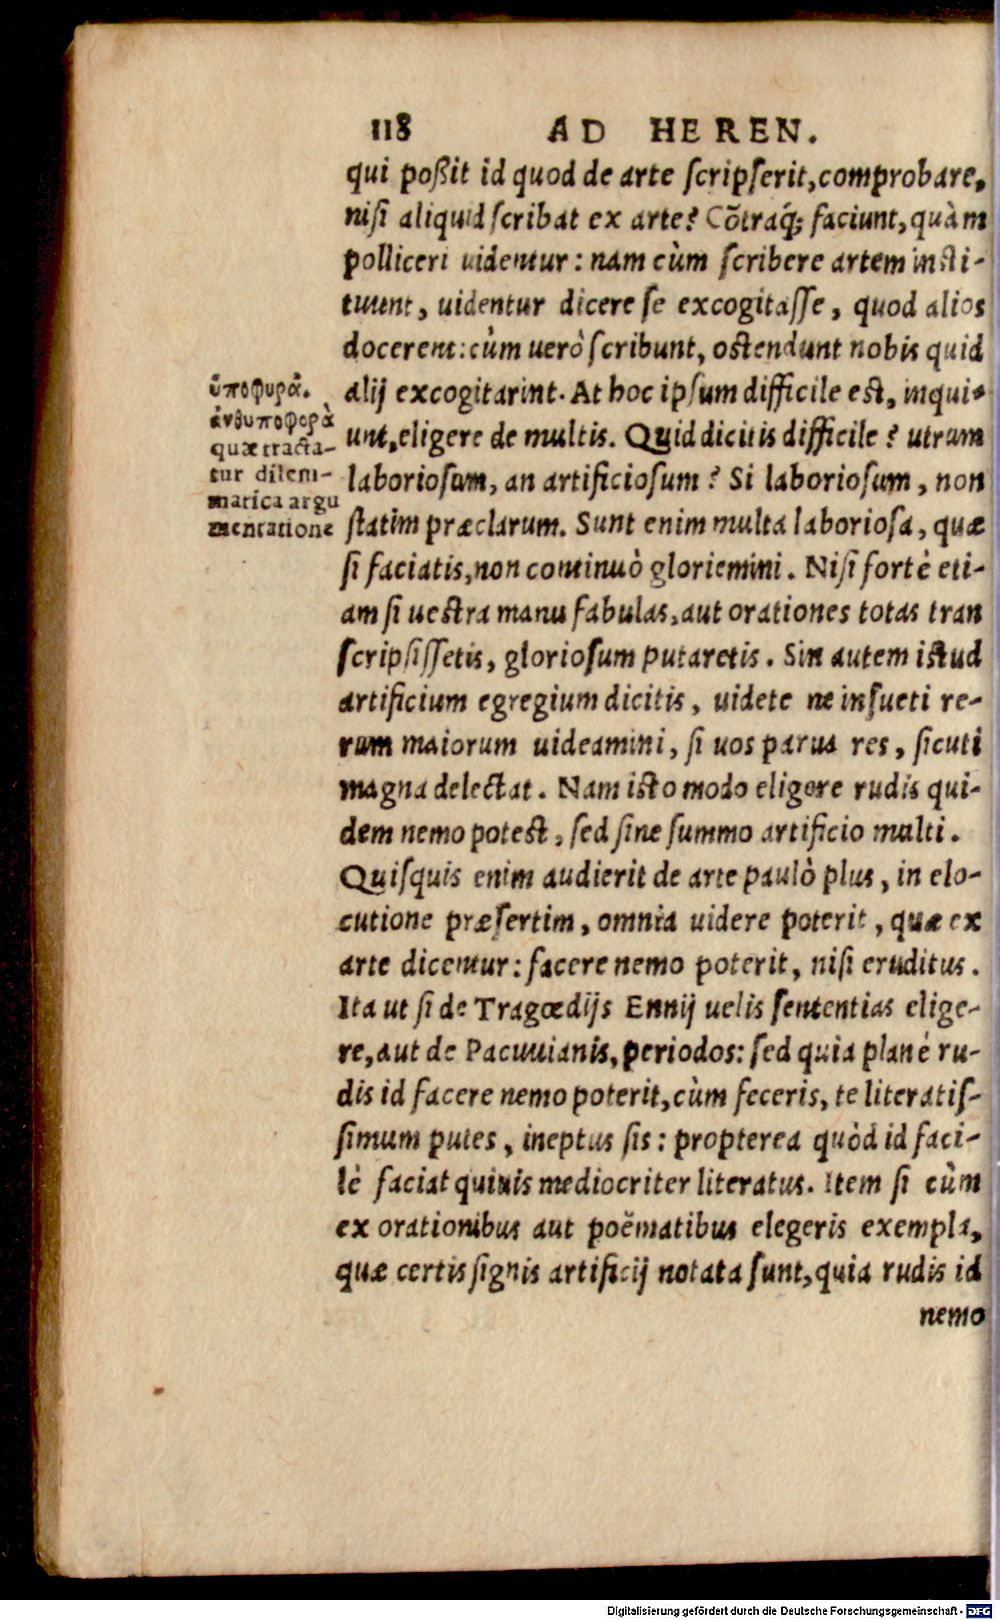 118 AD HEREN.
qui poßit id quod de arte ſcripſerit, comprobare,
niſi aliquid ſcribat ex arte? Cõtraq́; faciunt, quàm
polliceri uidentur: nam cùm ſcribere artem inſti-
tuunt, uidentur dicere ſe excogitaſſe, quod alios
docerent: cùm uerò ſcribunt, oſtendunt nobis quid
alij excogitarint. At hoc ipſum difficile eſt, inqui-
unt, eligere de multis. Quid dicitis difficile? utrum
laborioſum, an artificioſum? Si laborioſum, non
ſtatim præclarum. Sunt enim multa laborioſa, quæ
ſi faciatis, non continuò gloriemini. Niſi fortè eti-
am ſi ueſtra manu fabulas, aut orationes totas tran
ſcripſiſſetis, glorioſum putaretis. Sin autem iſtud
artificium egregium dicitis, uidete ne inſueti re-
rum maiorum uideamini, ſi uos parua res, ſicuti
magna delectat. Nam iſto modo eligere rudis qui-
dem nemo poteſt, ſed ſine ſummo artificio multi.
Quiſquis enim audierit de arte paulò plus, in elo-
cutione præſertim, omnia uidere poterit, quæ ex
arte dicentur: facere nemo poterit, niſi eruditus.
Ita ut ſi de Tragœdijs Ennij uelis ſententias elige-
re, aut de Pacuuianis, periodos: ſed quia planè ru-
dis id facere nemo poterit, cùm feceris, te literatiſ-
ſimum putes, ineptus ſis: propterea quòd id faci-
lè faciat quiuis mediocriter literatus. Item ſi cùm
ex orationibus aut poëmatibus elegeris exempla,
quæ certis ſignis artificij notata ſunt, quia rudis id
nemo
ὑποφορὰ.
ἀνθυποφορὰ
quæ tracta-
tur dilem-
matica argu
mentatione
Digitalisierung gefördert durch die Deutsche Forschungsgemeinschaft - DFG